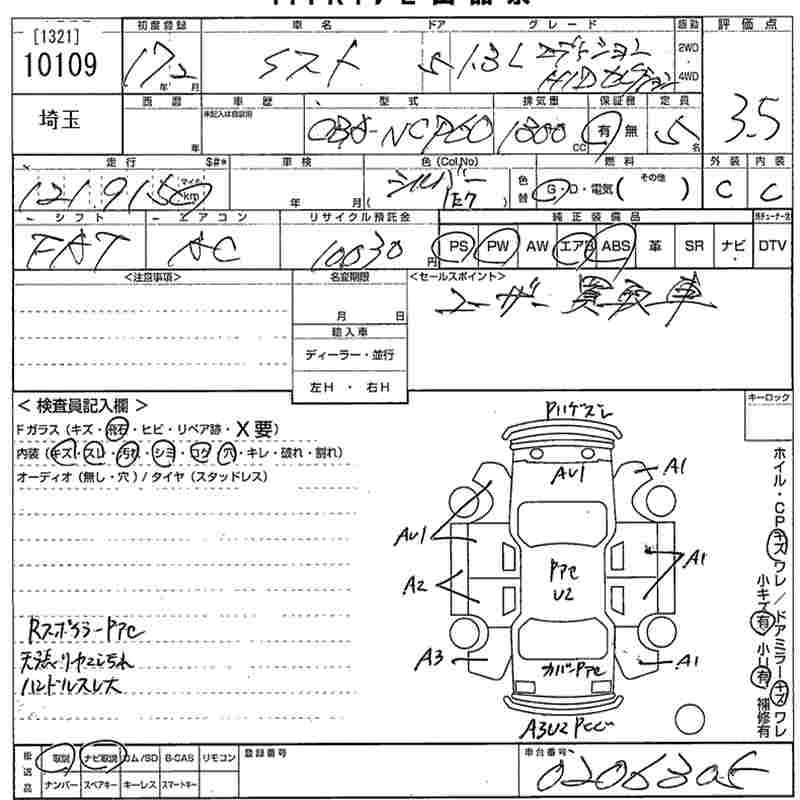 [1321]
10109
初度登録 車名 ドア グレード 駆動
17年2月 イスト 5 1.3L エディション 2WD
HIDセレクション 4WD
評価点
3.5
埼玉
西暦 車歴 型式 排気量 保証書 定員
未記入は自家用
年 CBA-NCP60 1300 CC 有・無 5名
走行 $#* 車検 色(Col.No) 燃料 外装 内装
121915 マイル km 年 月 ( シルバー 1E7 ) 色替 G・D・電気( その他 ) C C
シフト エアコン リサイクル預託金 純正装備品
FAT AC 10030円 PS PW AW エアB ABS 革 SR ナビ DTV
<注意事項> 名変期限 <セールスポイント>
月 日 ユーザー買取車
輸入車
ディーラー・並行
左H ・ 右H
<検査員記入欄>
Fガラス(キズ・飛石・ヒビ・リペア跡・X要)
内装(キズ・スレ・汚れ・シミ・コゲ・穴・キレ・破れ・割れ)
オーディオ(無し・穴)/タイヤ(スタッドレス)
キーロック
AU1 A1
AU1 A1
A2 U2
A3 A1
Rスポイラー
ハンドルスレ大
ホイル・CPキズワレ/ドアミラーキズワレ
小キズ有 小U有 補修有
後送品 取説 ナビ取説 ロム/SD B-CAS リモコン 登録番号 車台番号
ナンバー スペアキー キーレス スマートキー 0206305